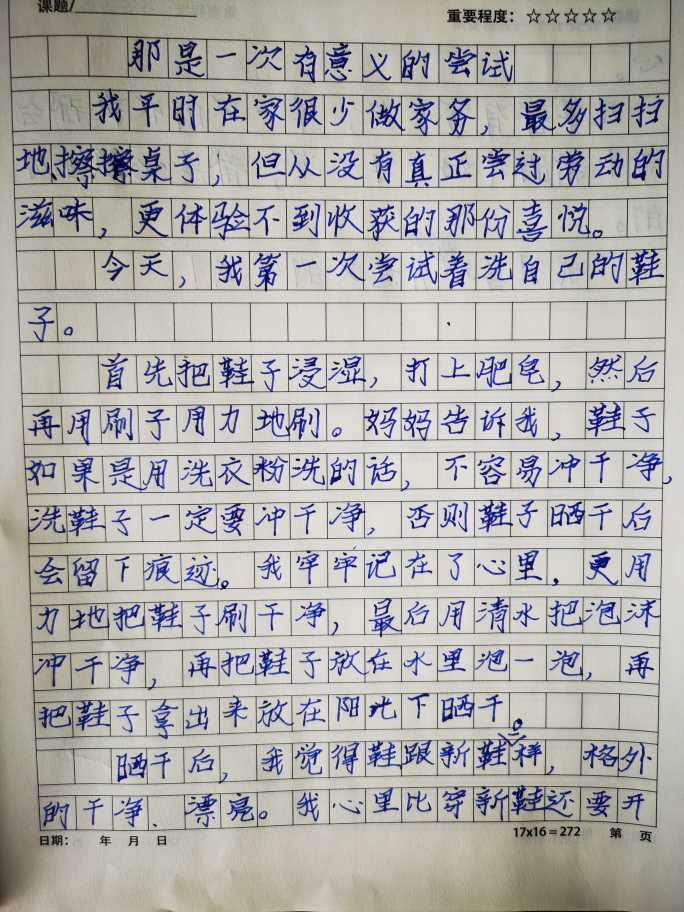 课题/
重要程度：☆☆☆☆☆
那是一次有意义的尝试
我平时在家很少做家务，最多扫扫
地、擦擦桌子，但从没有真正尝过劳动的
滋味，更体验不到收获的那份喜悦。
今天，我第一次尝试着洗自己的鞋
子。
首先把鞋子浸湿，打上肥皂，然后
再用刷子用力地刷。妈妈告诉我，鞋子
如果是用洗衣粉洗的话，不容易冲干净，
洗鞋子一定要冲干净，否则鞋子晒干后
会留下痕迹。我牢牢记在了心里，更用
力地把鞋子刷干净，最后用清水把泡沫
冲干净，再把鞋子放在水里泡一泡，再
把鞋子拿出来放在阳光下晒干。
晒干后，我觉得鞋跟新鞋样，格外
的干净、漂亮。我心里比穿新鞋还要开
日期： 年 月 日
17x16=272 第 页